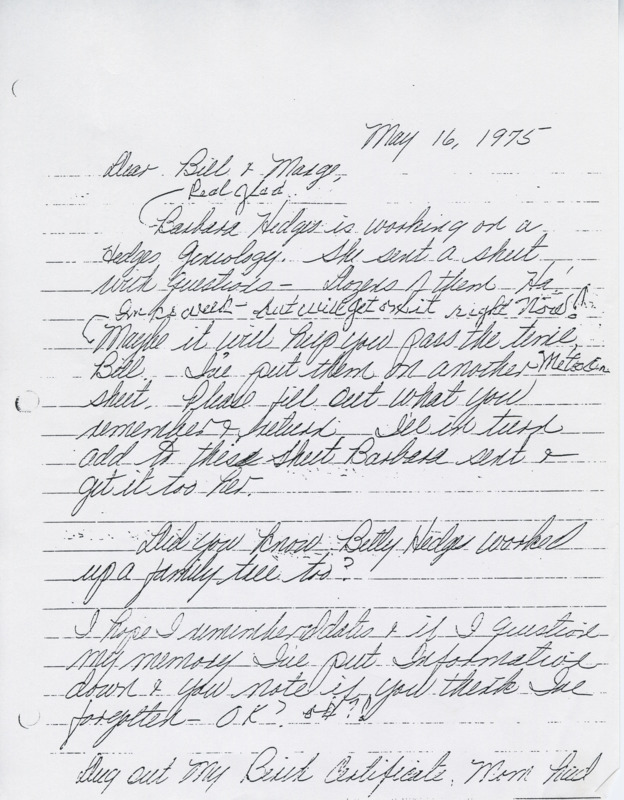 May 16, 1975
Dear Bill & Marge,
Real glad
Barbara Hedges is working on a
Hedges Geneology. She sent a sheet
with questions - Dozens of them Ha!
week - but will get on it right Now!!
Maybe it will help you pass the time,
Bill. I've put them on another
sheet. Please fill out what you
remember & return. I'll in turn
add to these sheet Barbara sent &
get it too her.
Did you know Betty Hedges worked
up a family tree too?
I hope I remembered dates & if I question
my memory I've put Information
down & you note if you think I've
forgotten - OK?
Dug out My Birth Certificate. Mom had